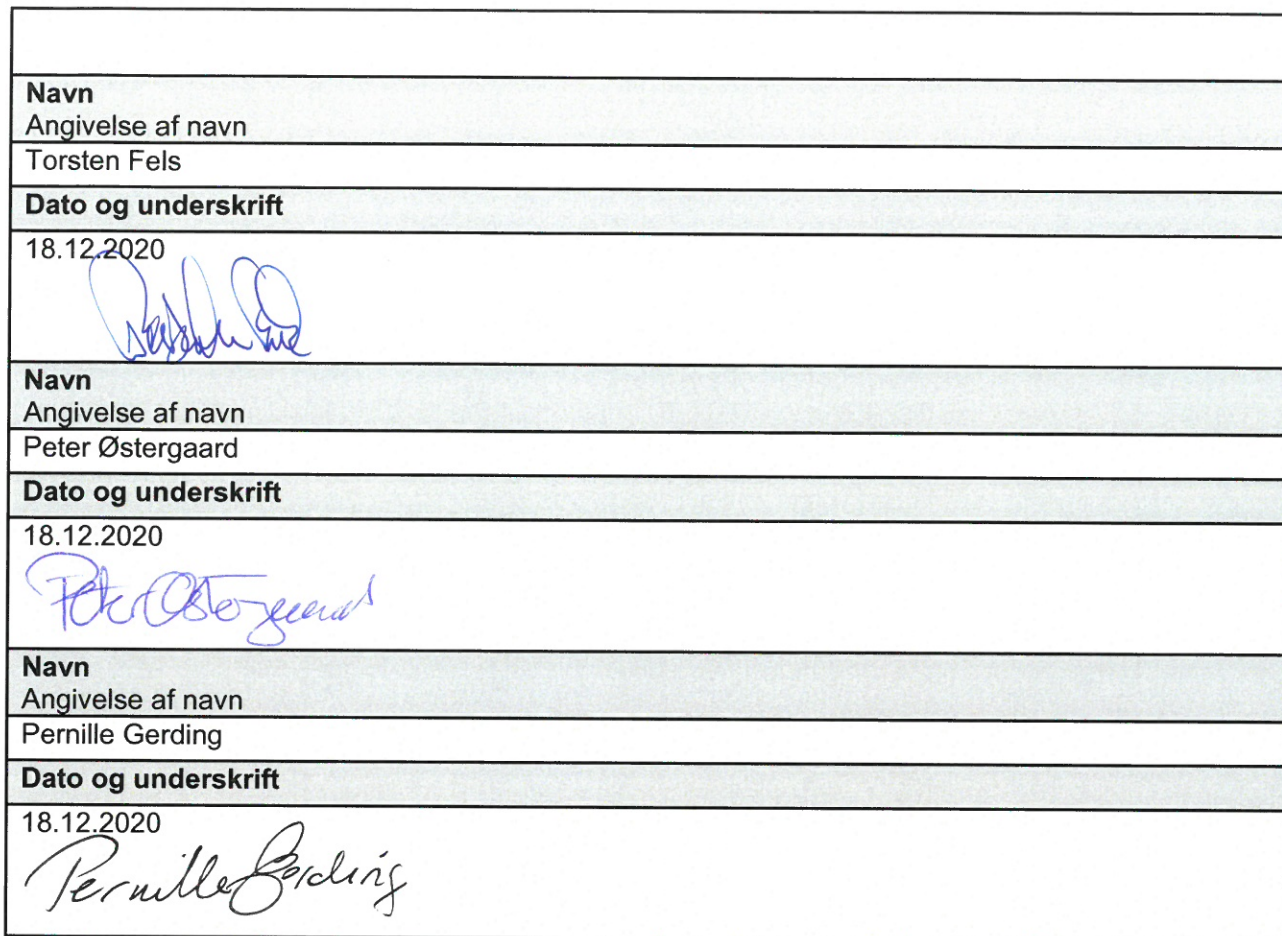 Navn
Angivelse af navn
Torsten Fels
Dato og underskrift
18.12.2020
Navn
Angivelse af navn
Peter Østergaard
Dato og underskrift
18.12.2020
Peter Østergaard
Navn
Angivelse af navn
Pernille Gerding
Dato og underskrift
18.12.2020
Pernille Gerding